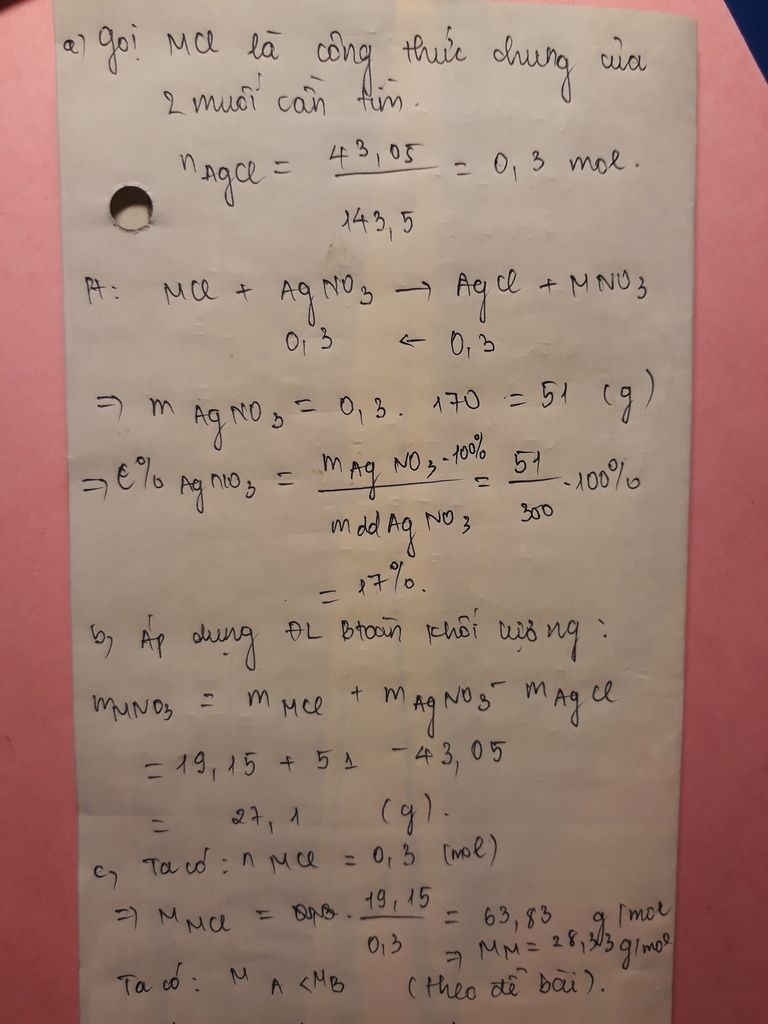 a, Gọi MCl là công thức chung của
2 muối cần tìm.
nAgCl = 43,05 / 143,5 = 0,3 mol.
Pt: MCl + AgNO3 → AgCl + MNO3
0,3 ← 0,3
=> m AgNO3 = 0,3. 170 = 51 (g)
=> C% AgNO3 = mAgNO3.100% / mddAgNO3 = 51 / 300 .100%
= 17%.
b, Áp dụng ĐL Btoàn khối lượng:
mMNO3 = mMCl + mAgNO3 - mAgCl
= 19,15 + 51 - 43,05
= 27,1 (g).
c, Ta có: nMCl = 0,3 (mol)
=> MMCl = 19,15 / 0,3 = 63,83 g/mol
=> MM = 28,33 g/mol
Ta có: MA < MB (theo đề bài).